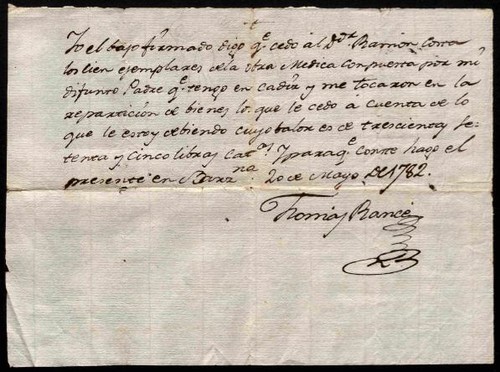 Yo el bajo firmado digo q.e cedo al D.or Ramon Costa
los cien exemplares de la obra Medica compuesta por mi
difunto Padre q.e tengo en Cadiz y me tocaron en la
reparticion de bienes lo que le cedo a cuenta de lo
que le estoy debiendo cuyo balor es de trescientas se-
tenta y cinco libras Cat.s Y para q.e conste hago el
presente en Barz.na 20 de Mayo de 1782.
Thomas